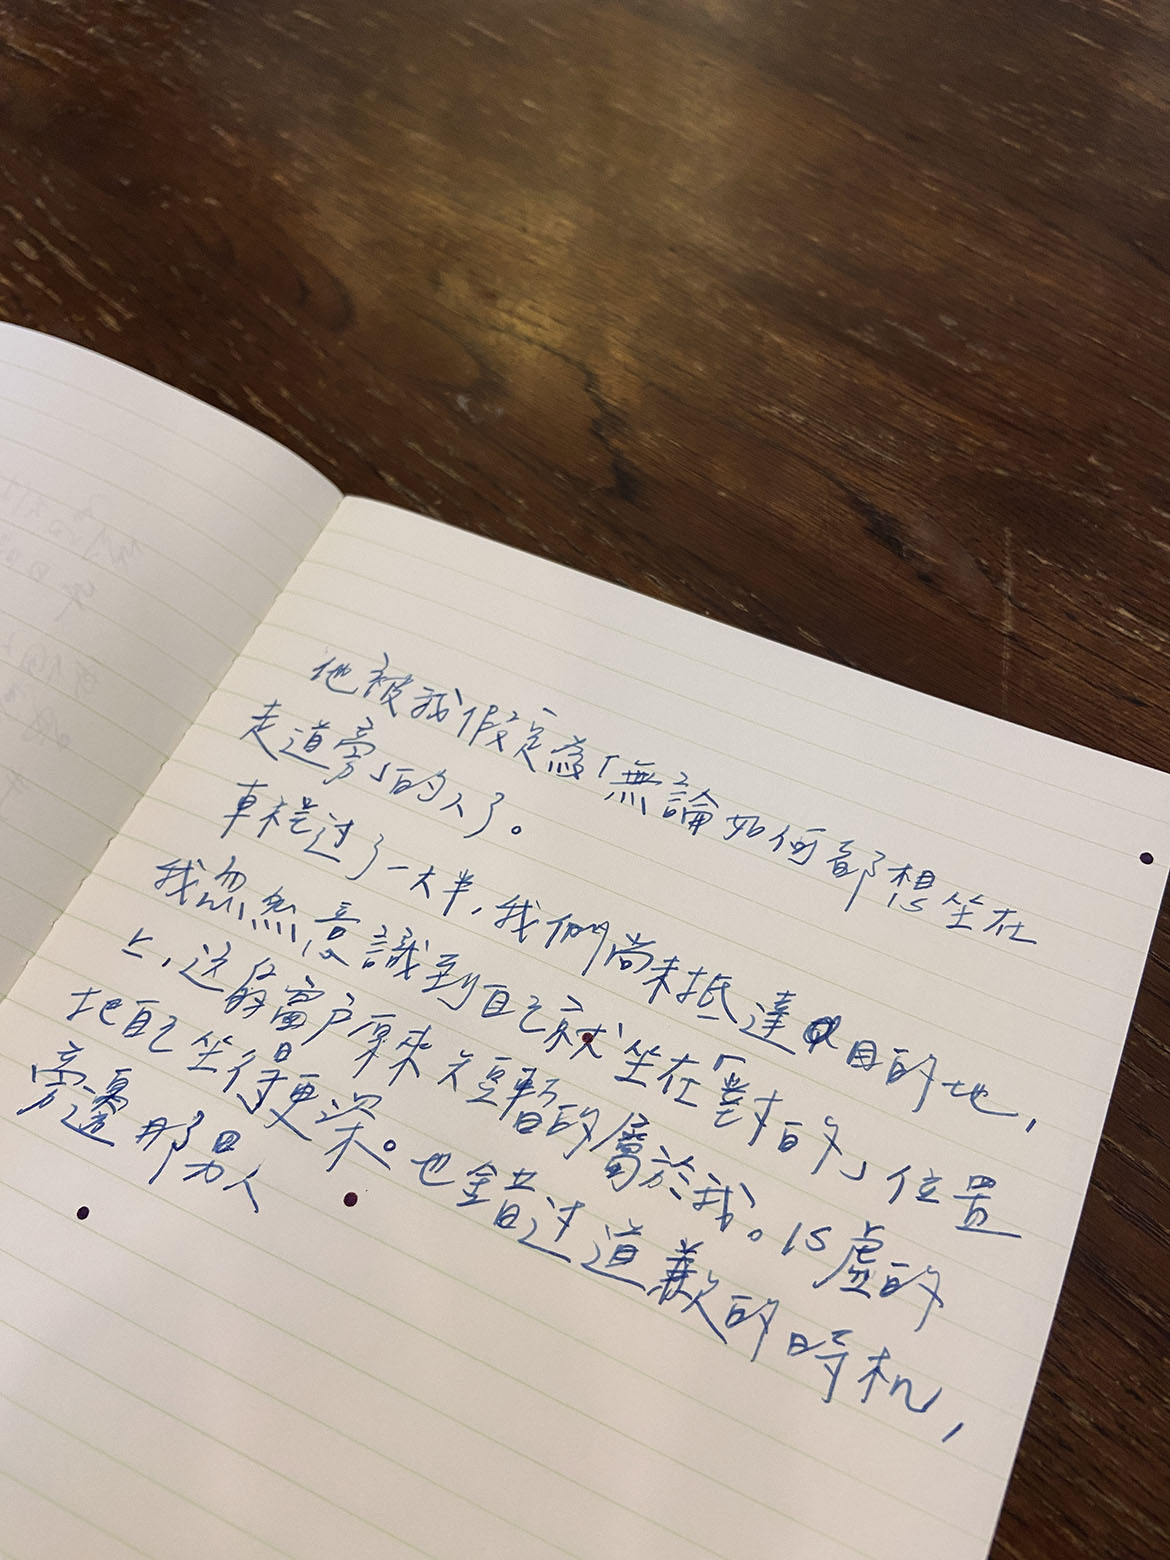 他被我假定為「無論如何都想坐在
走道旁」的人了。
車程过了一大半,我們尚未抵達目的地,
我忽然意識到自己就坐在「對的」位置
上,这的窗户原來短暫的屬於我。心虛的
把自己坐得更深。也錯过道歉的時机,
旁邊那男人